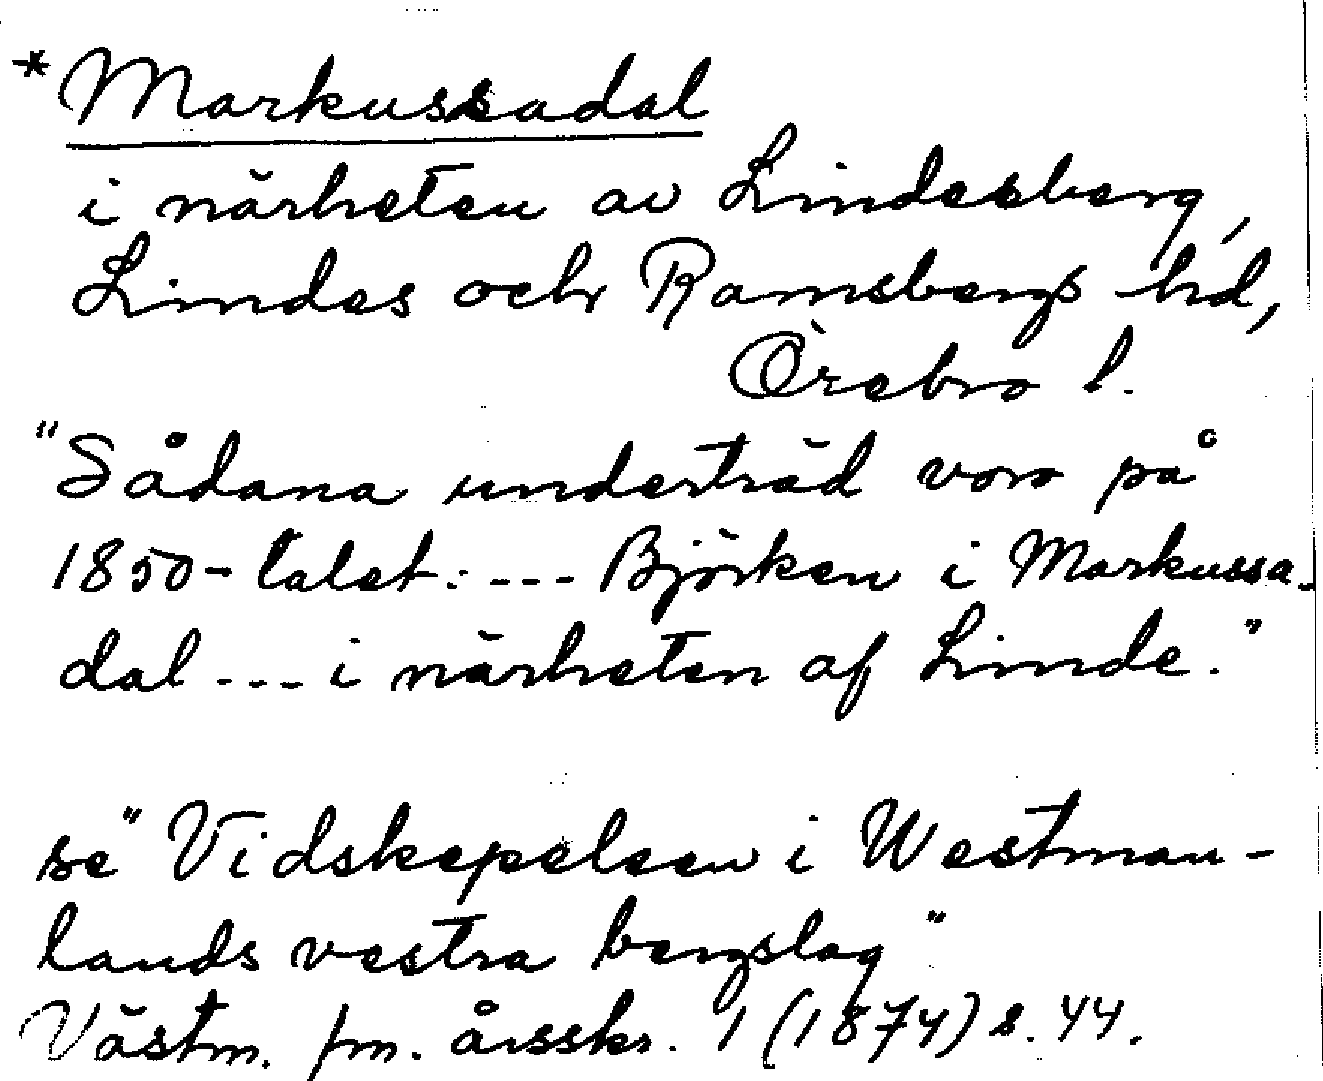 *Markussadal
i närheten av Lindesberg,
Lindes och Ramsbergs hd,
Örebro l.
"Sådana underträd voro på
1850-talet: --- Björken i Markussa-
dal --- i närheten af Linde."
se "Vidskepelsen i Westman-
lands vestra bergslag"
Västm. fm. årsskr. 1 (1874) s. 44.